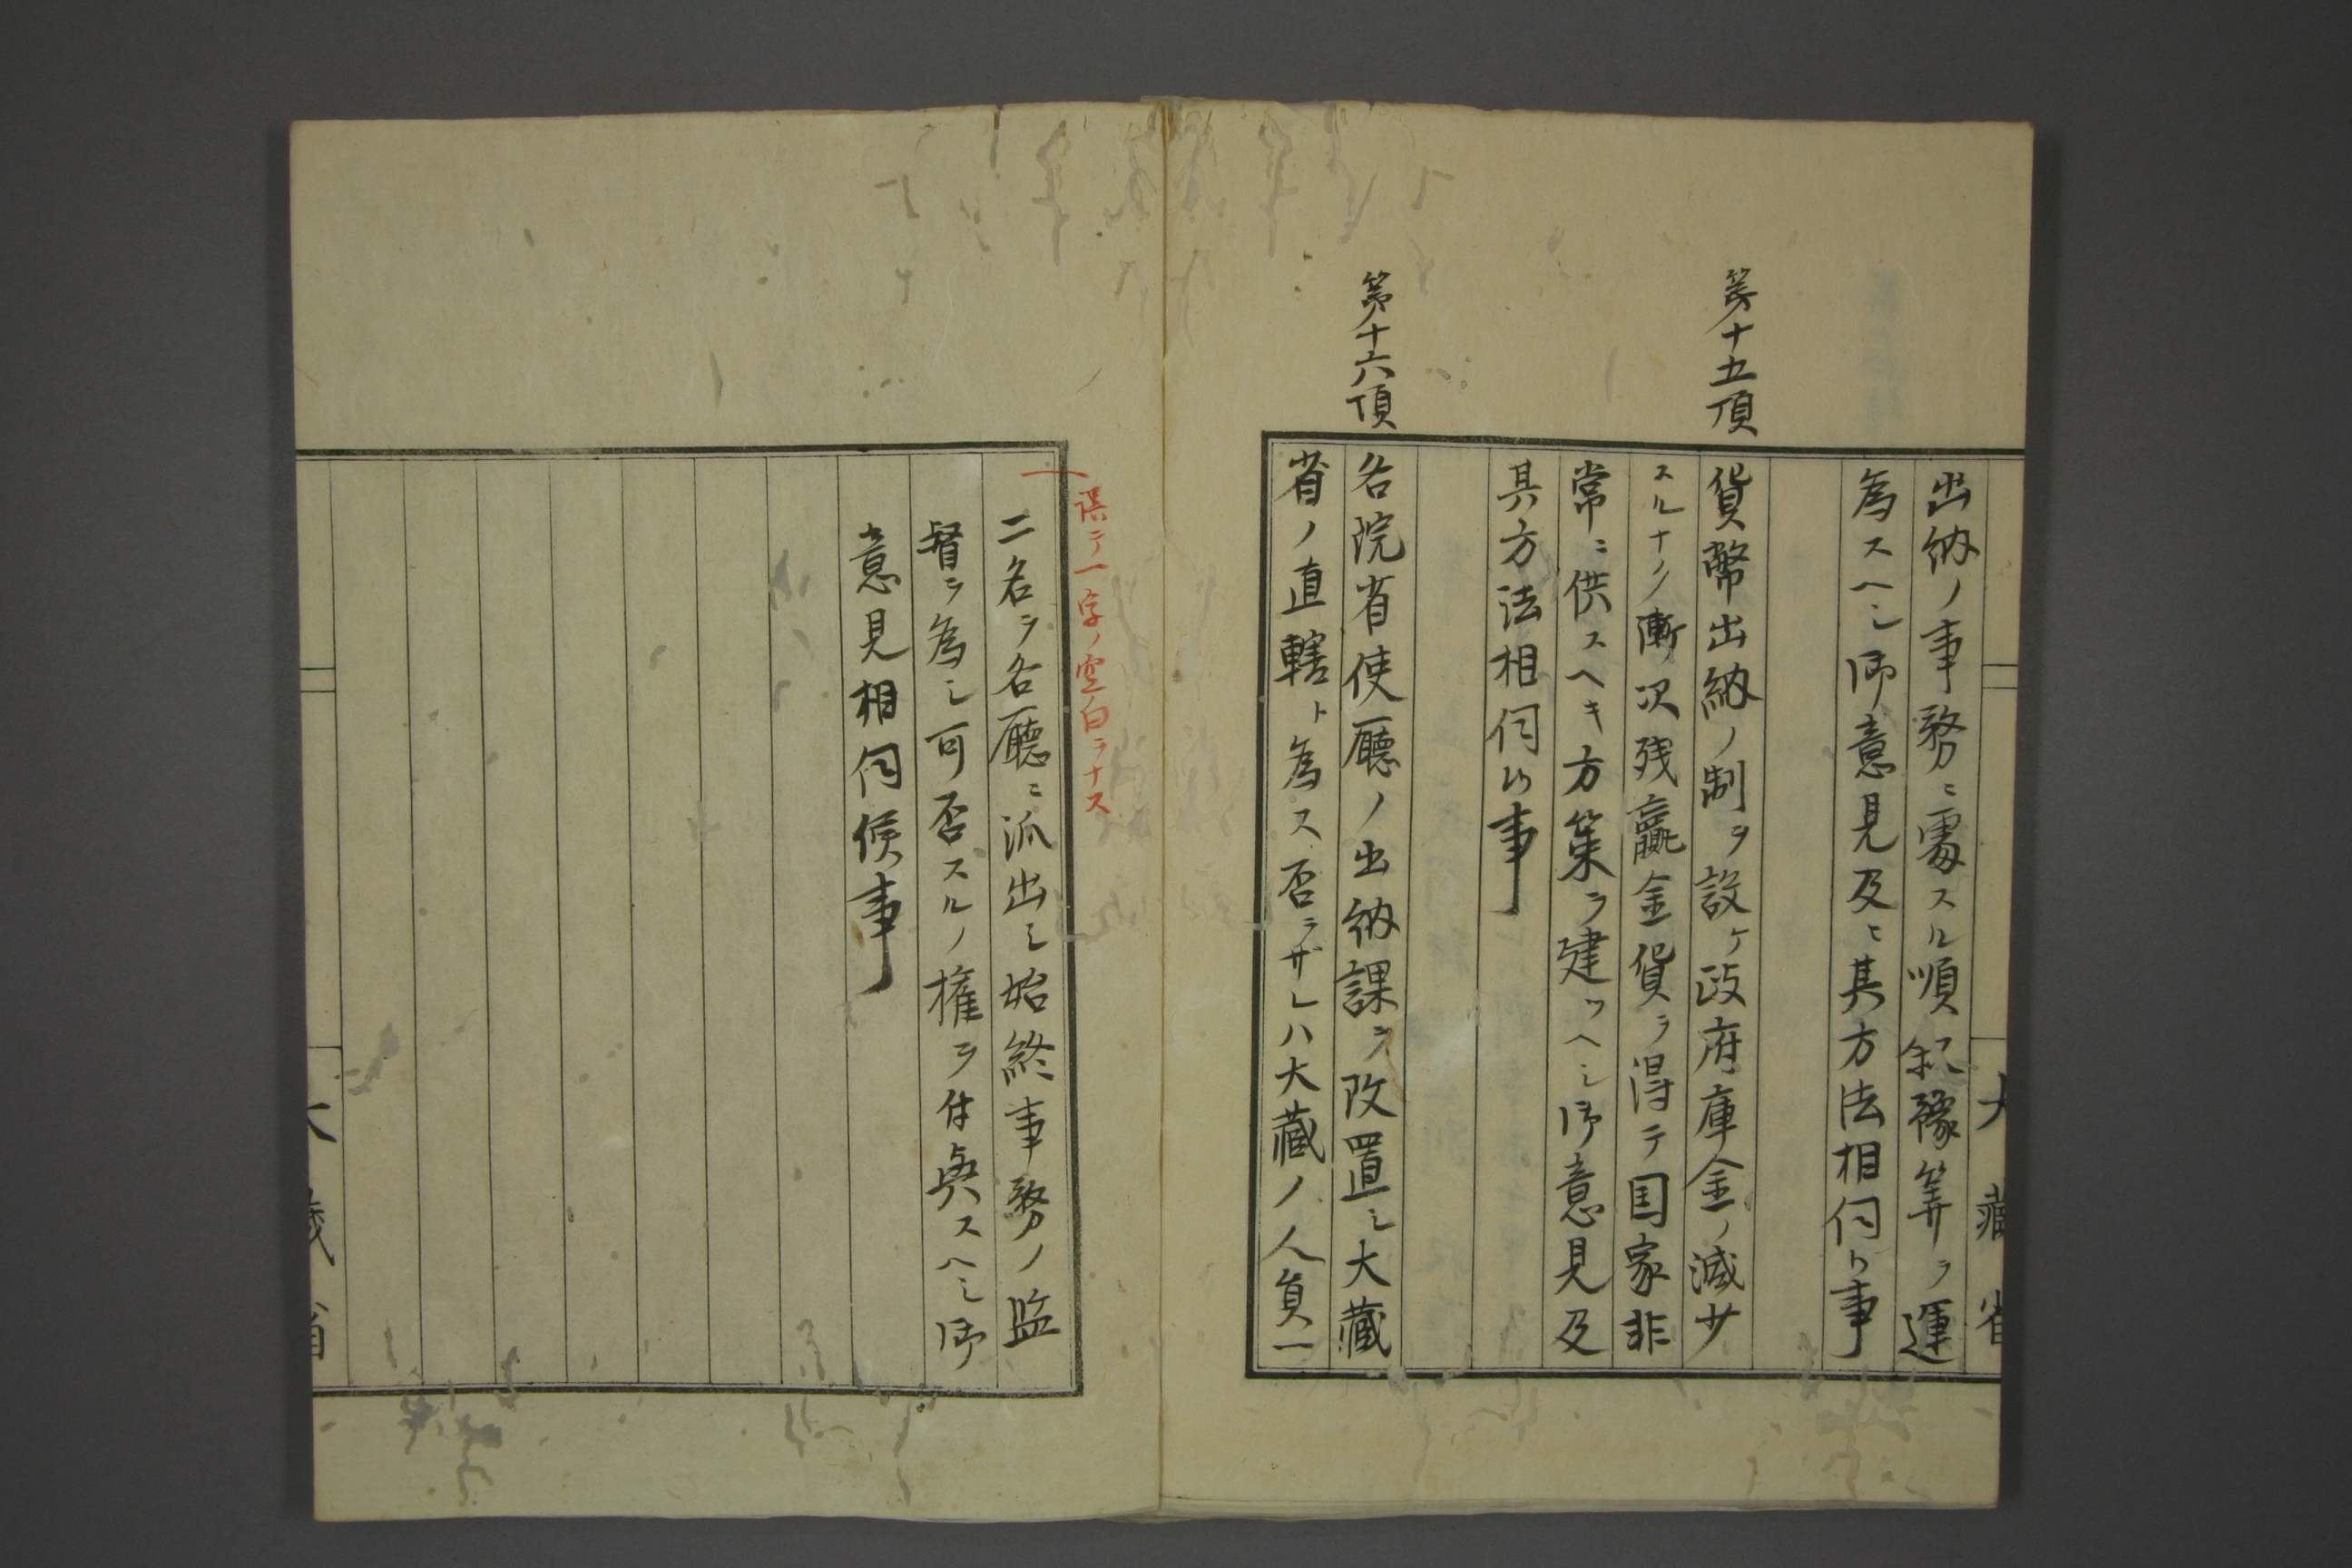 出納ノ事務ニ需スル順叙豫筭ヲ運
為スヘシ御意見及ニ其方法相伺候事
第十五項
貨幣出納ノ制ヲ設ケ政府庫金ノ減少
スルナク漸次残贏金貨ヲ得テ国家非
常ニ供スヘキ方策ヲ建ツヘシ御意見及
其方法相伺候事
第十六項
各院省使廳ノ出納課ヲ改置シ大藏
省ノ直轄ト為ス否ラザレハ大藏ノ人員一
大藏省
誤テ一字ノ空白ヲナス
二名ヲ各廳ニ派出シ始終事務ノ監
督ヲ為シ可否スルノ権ヲ付與スヘシ御
意見相伺候事
大藏省